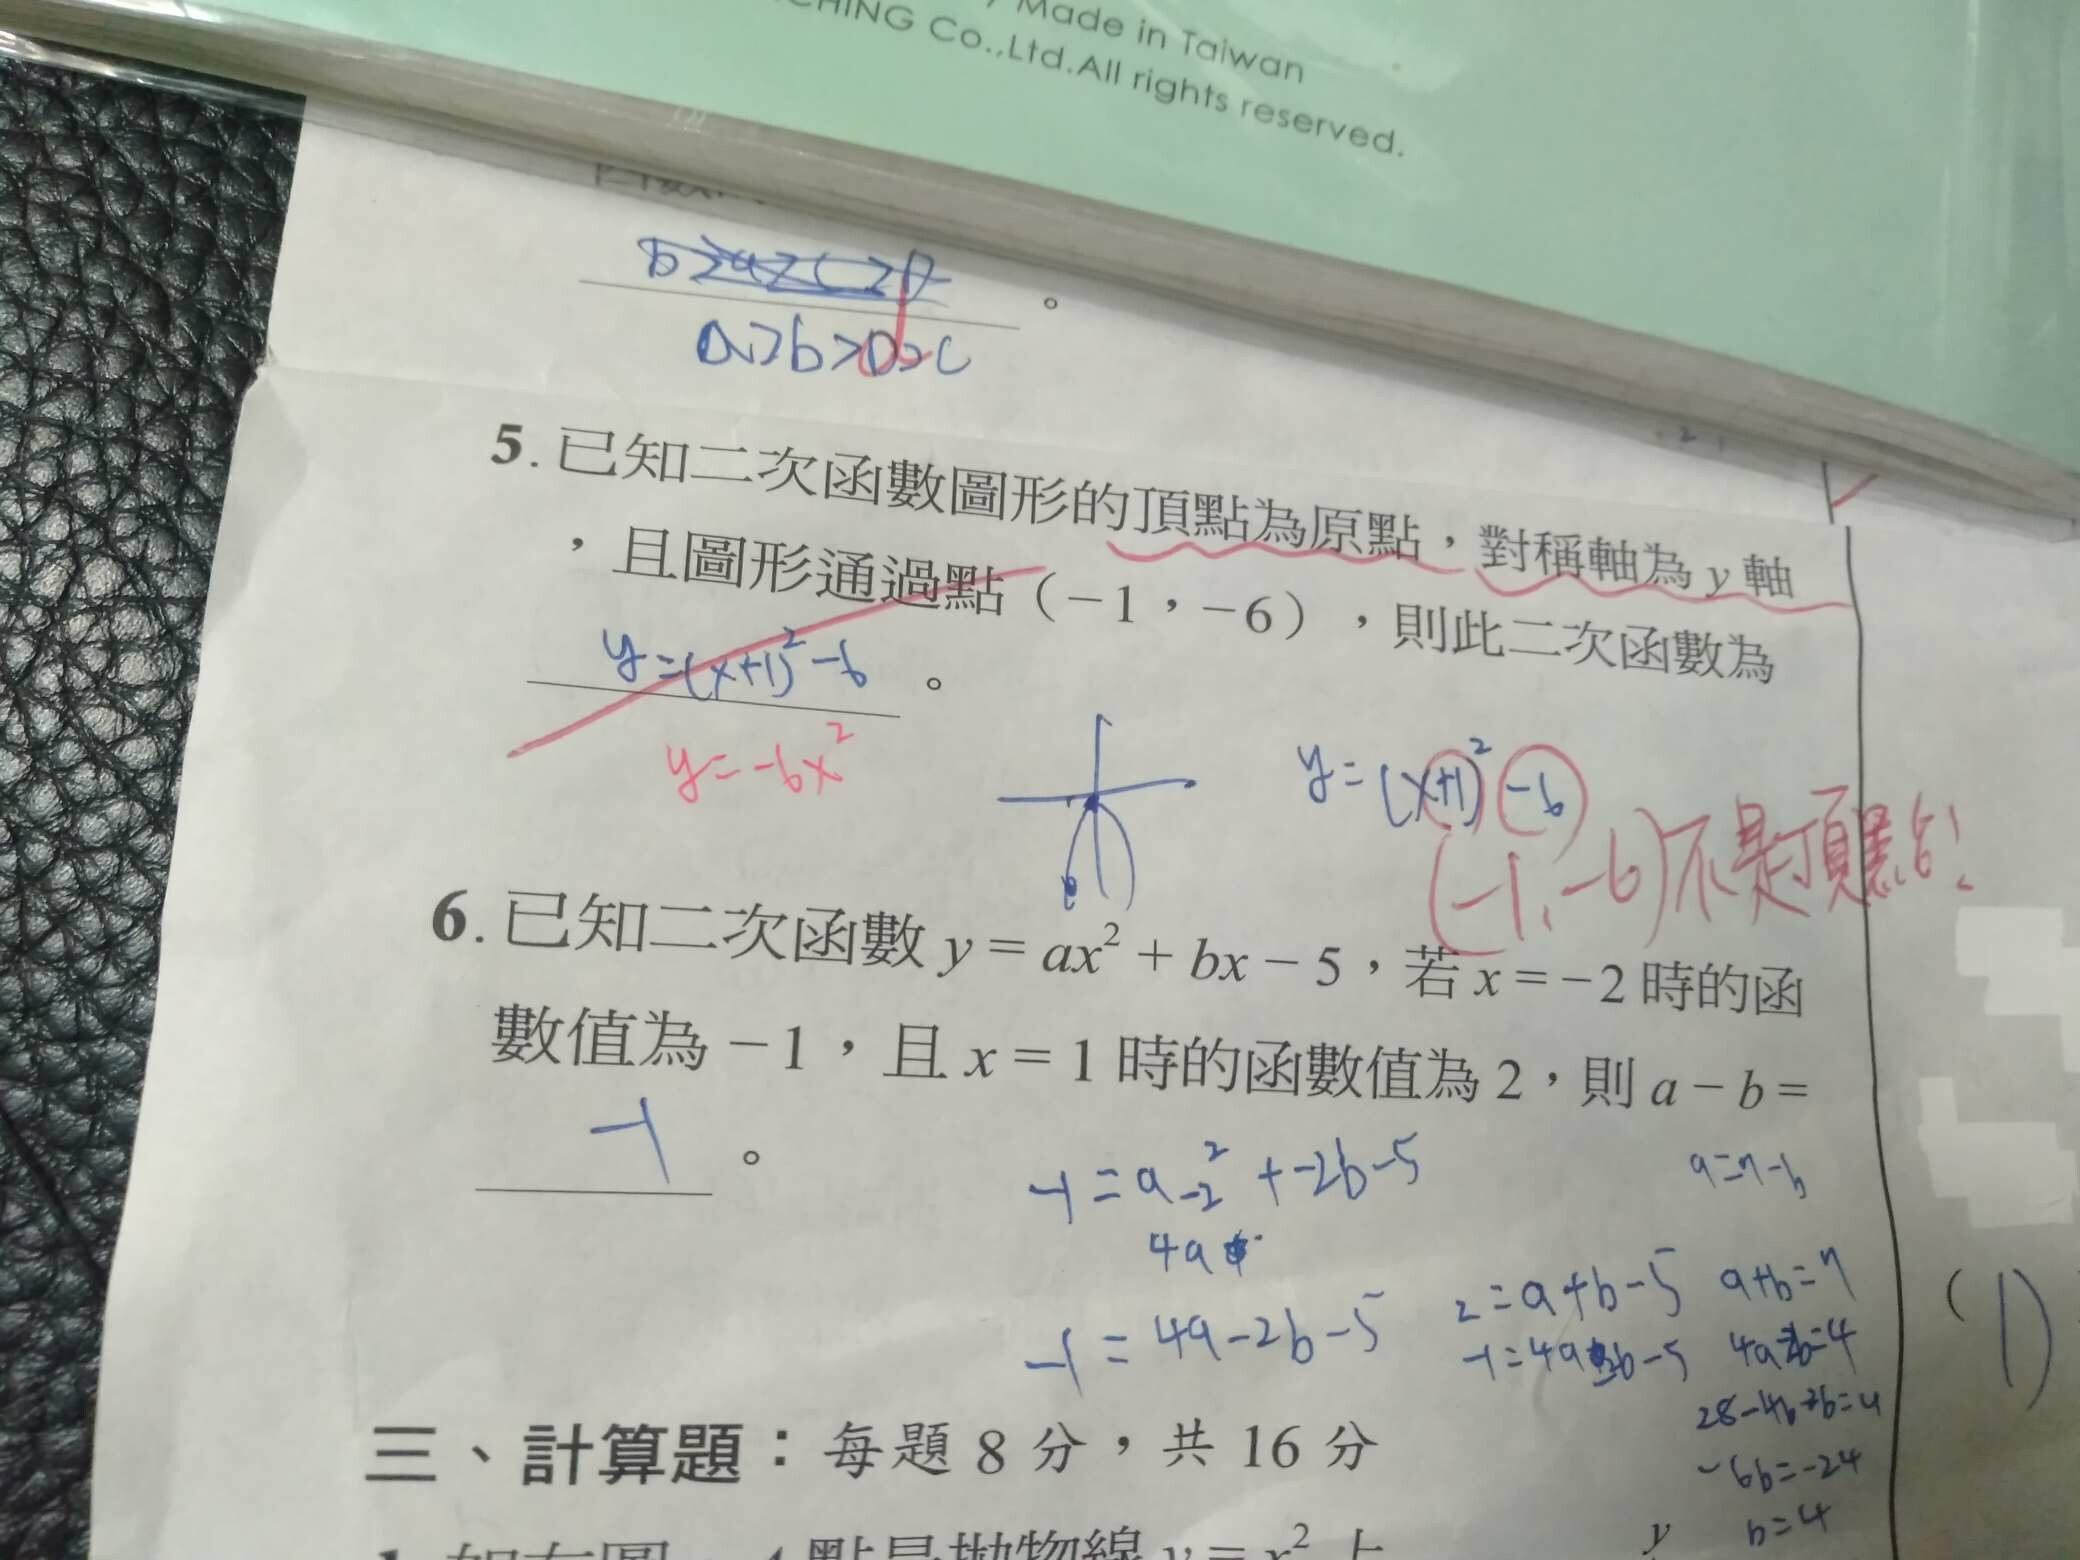 Made in Taiwan
CHING Co.,Ltd.All rights reserved.
。
a>b>0>c
5. 已知二次函數圖形的頂點為原點，對稱軸為 y 軸
，且圖形通過點（-1，-6），則此二次函數為
y=(x+1)²-6 。
y=-6x²
y=(x+1)²-6
(-1,-6)不是頂點!
6. 已知二次函數 y = ax² + bx - 5，若 x = -2 時的函
數值為 -1，且 x = 1 時的函數值為 2，則 a - b =
-1 。
-1=a-2²+-2b-5
a=7-b
4a
2=a+b-5 a+b=7
-1=4a-2b-5
-1=4a-2b-5 4a-2b=4
28-4b-2b=4
-6b=-24
b=4
(1)
三、計算題：每題 8 分，共 16 分
y